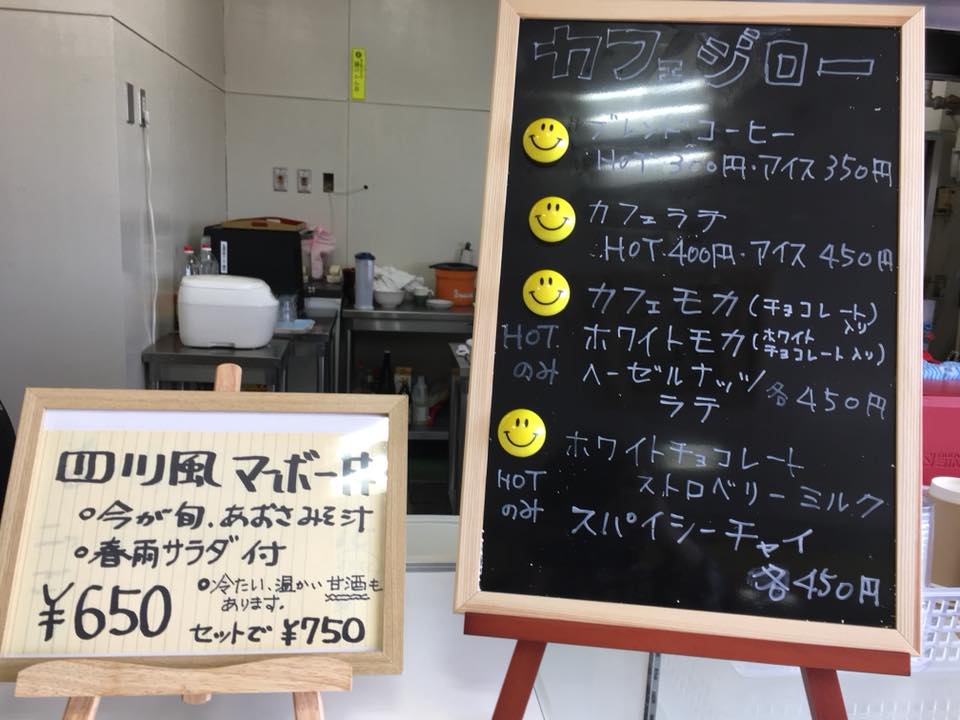 四川風マーボー丼
○今が旬、あおさみそ汁
○春雨サラダ付
○冷たい、温かい甘酒も
あります。
¥650
セットで ¥750
カフェジロー
ブレンドコーヒー
HOT 300円・アイス 350円
カフェラテ
HOT 400円・アイス 450円
カフェモカ(チョコレート入り)
HOT のみ
ホワイトモカ(ホワイトチョコレート入り)
ヘーゼルナッツ
ラテ 各450円
ホワイトチョコレート
ストロベリーミルク
HOT のみ
スパイシーチャイ
各450円